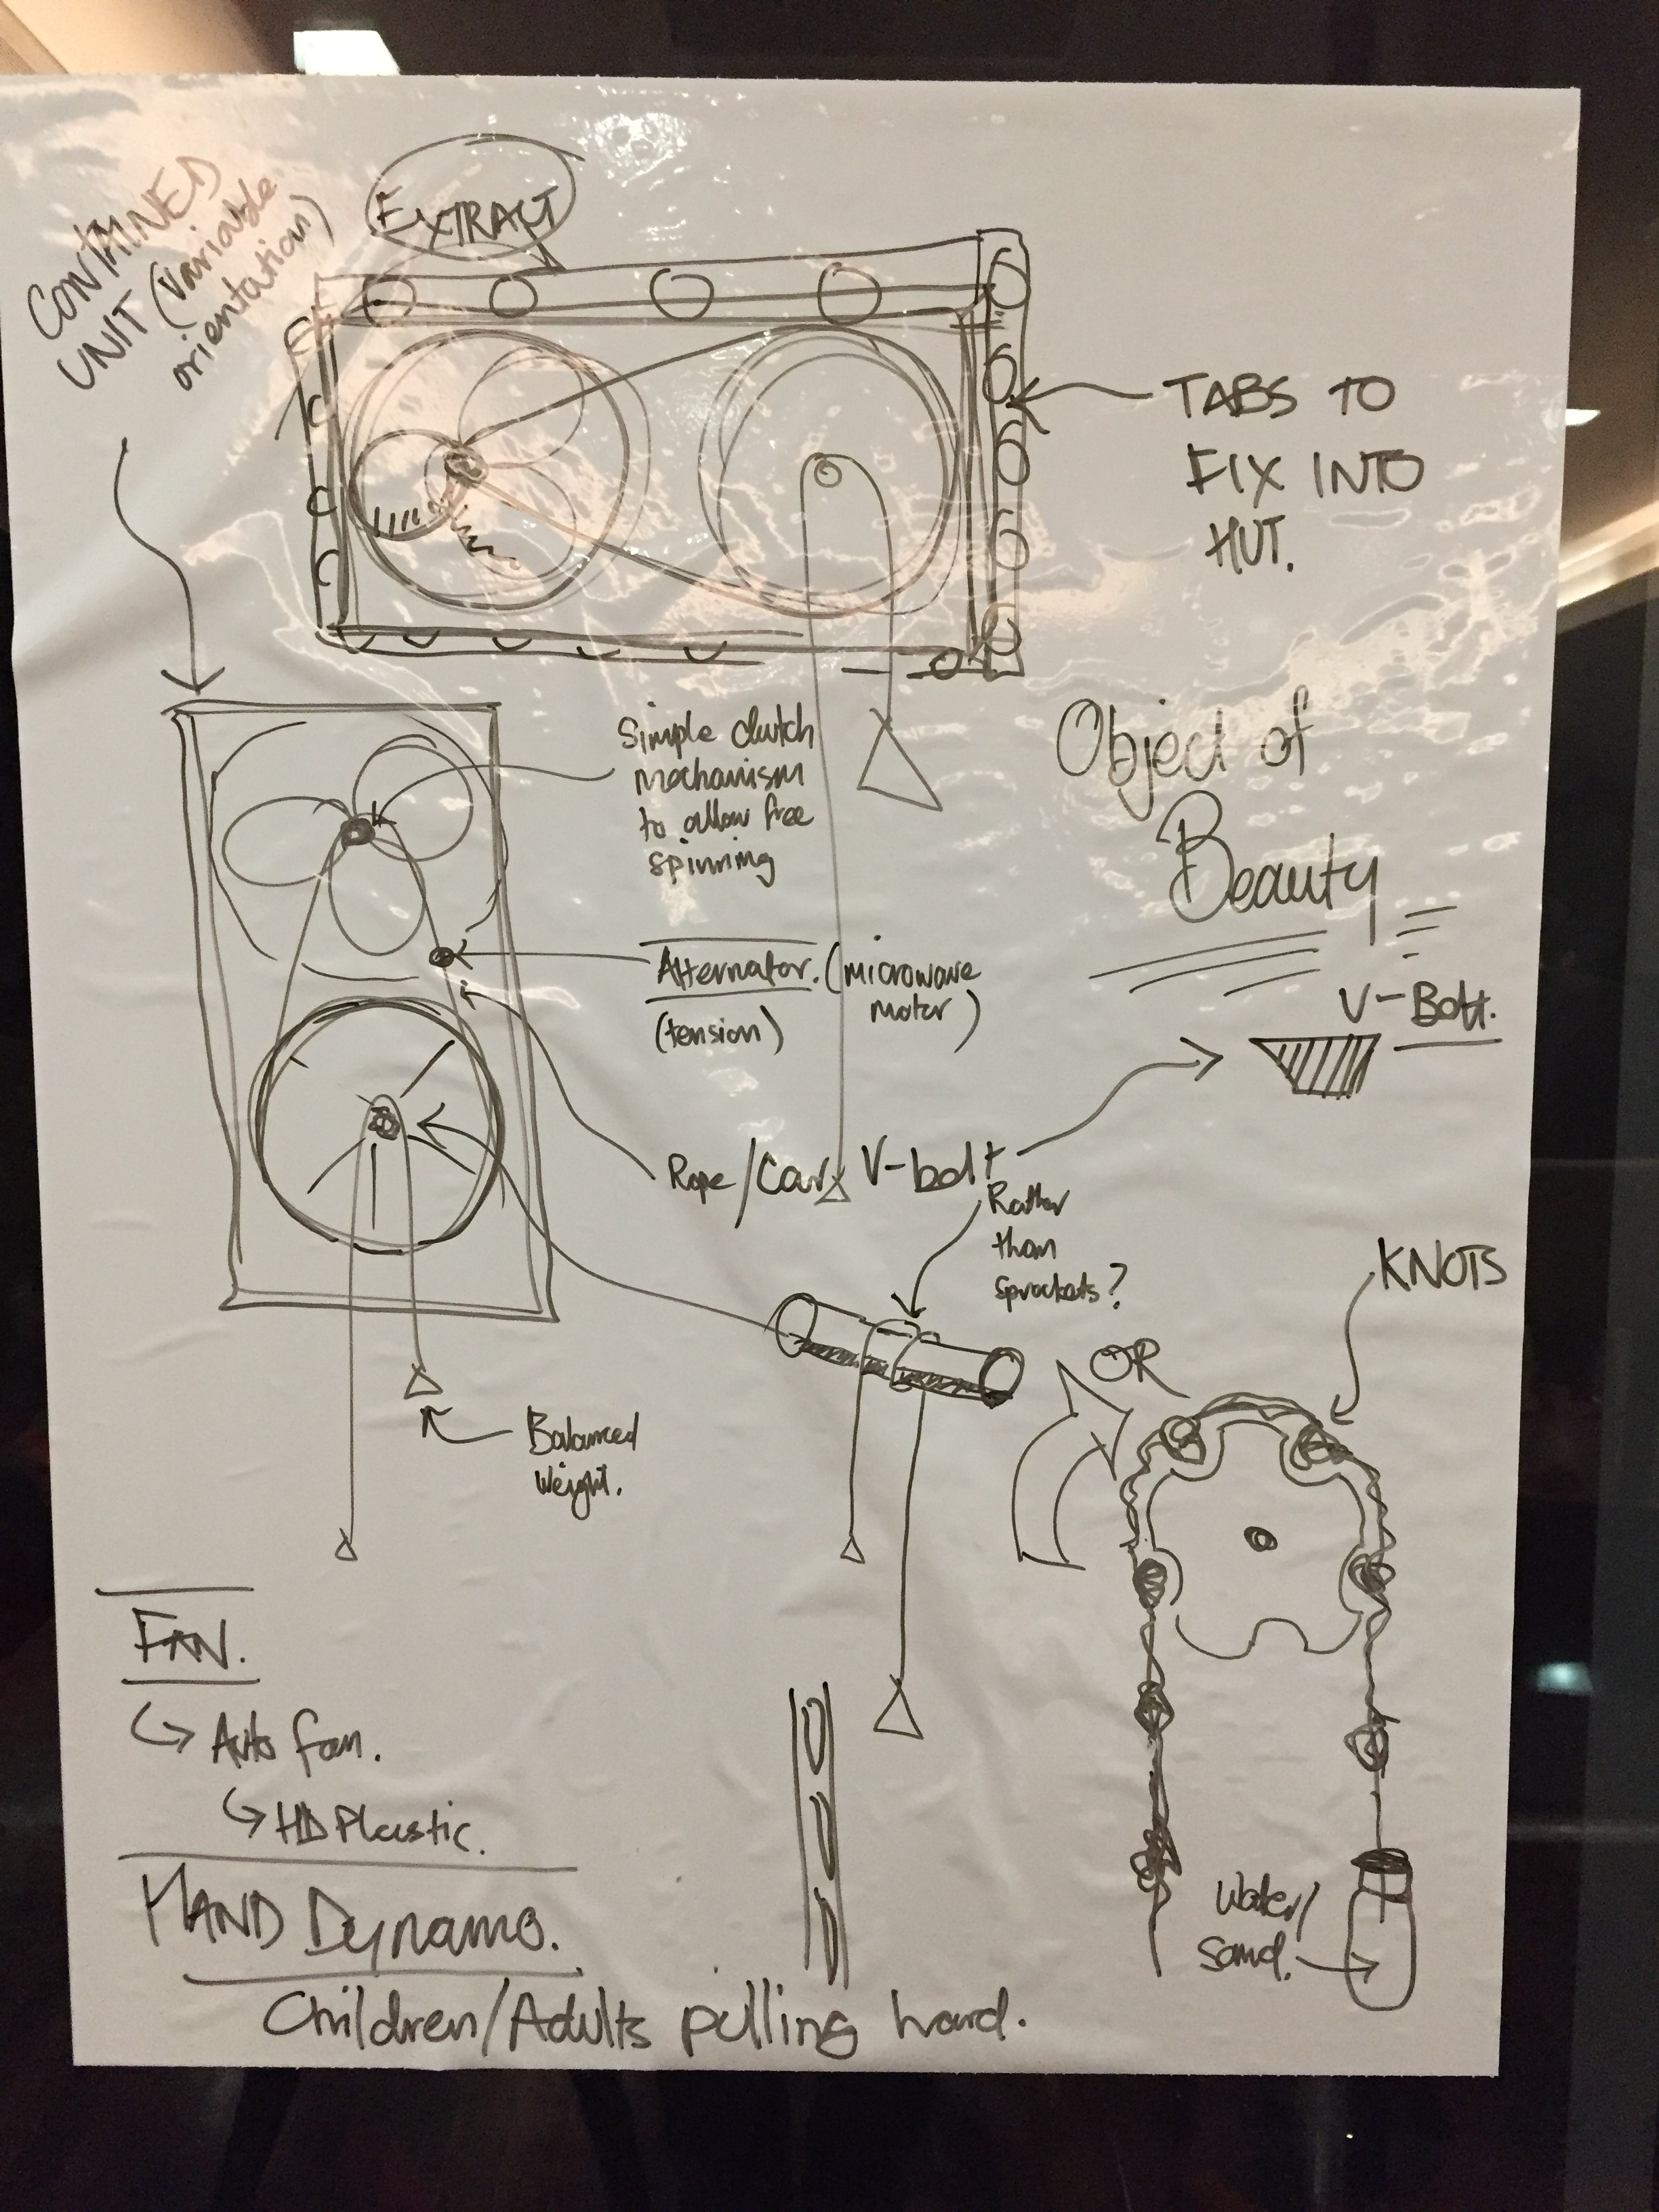 CONTAINED
UNIT (Variable
orientation)
EXTRACT
TABS TO
FIX INTO
HUT.
Simple clutch
mechanism
to allow free
spinning
Object of
Beauty
Alternator. (microwave
motor)
(tension)
V-Bolt.
Rope/Car V-bolt
Rather
than
sprockets?
KNOTS
OR
Balanced
Weight.
FAN.
Auto fan.
HD Plastic.
HAND Dynamo.
Water/
Sand.
Children/Adults pulling hard.